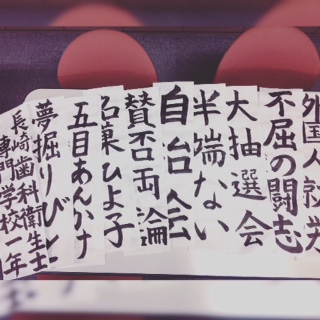 外国人就労
不屈の闘志
大抽選会
半端ない
自治会
賛否両論
名菓ひよ子
五目あんかけ
夢掘りびと
長崎歯科衛生士
専門学校一年